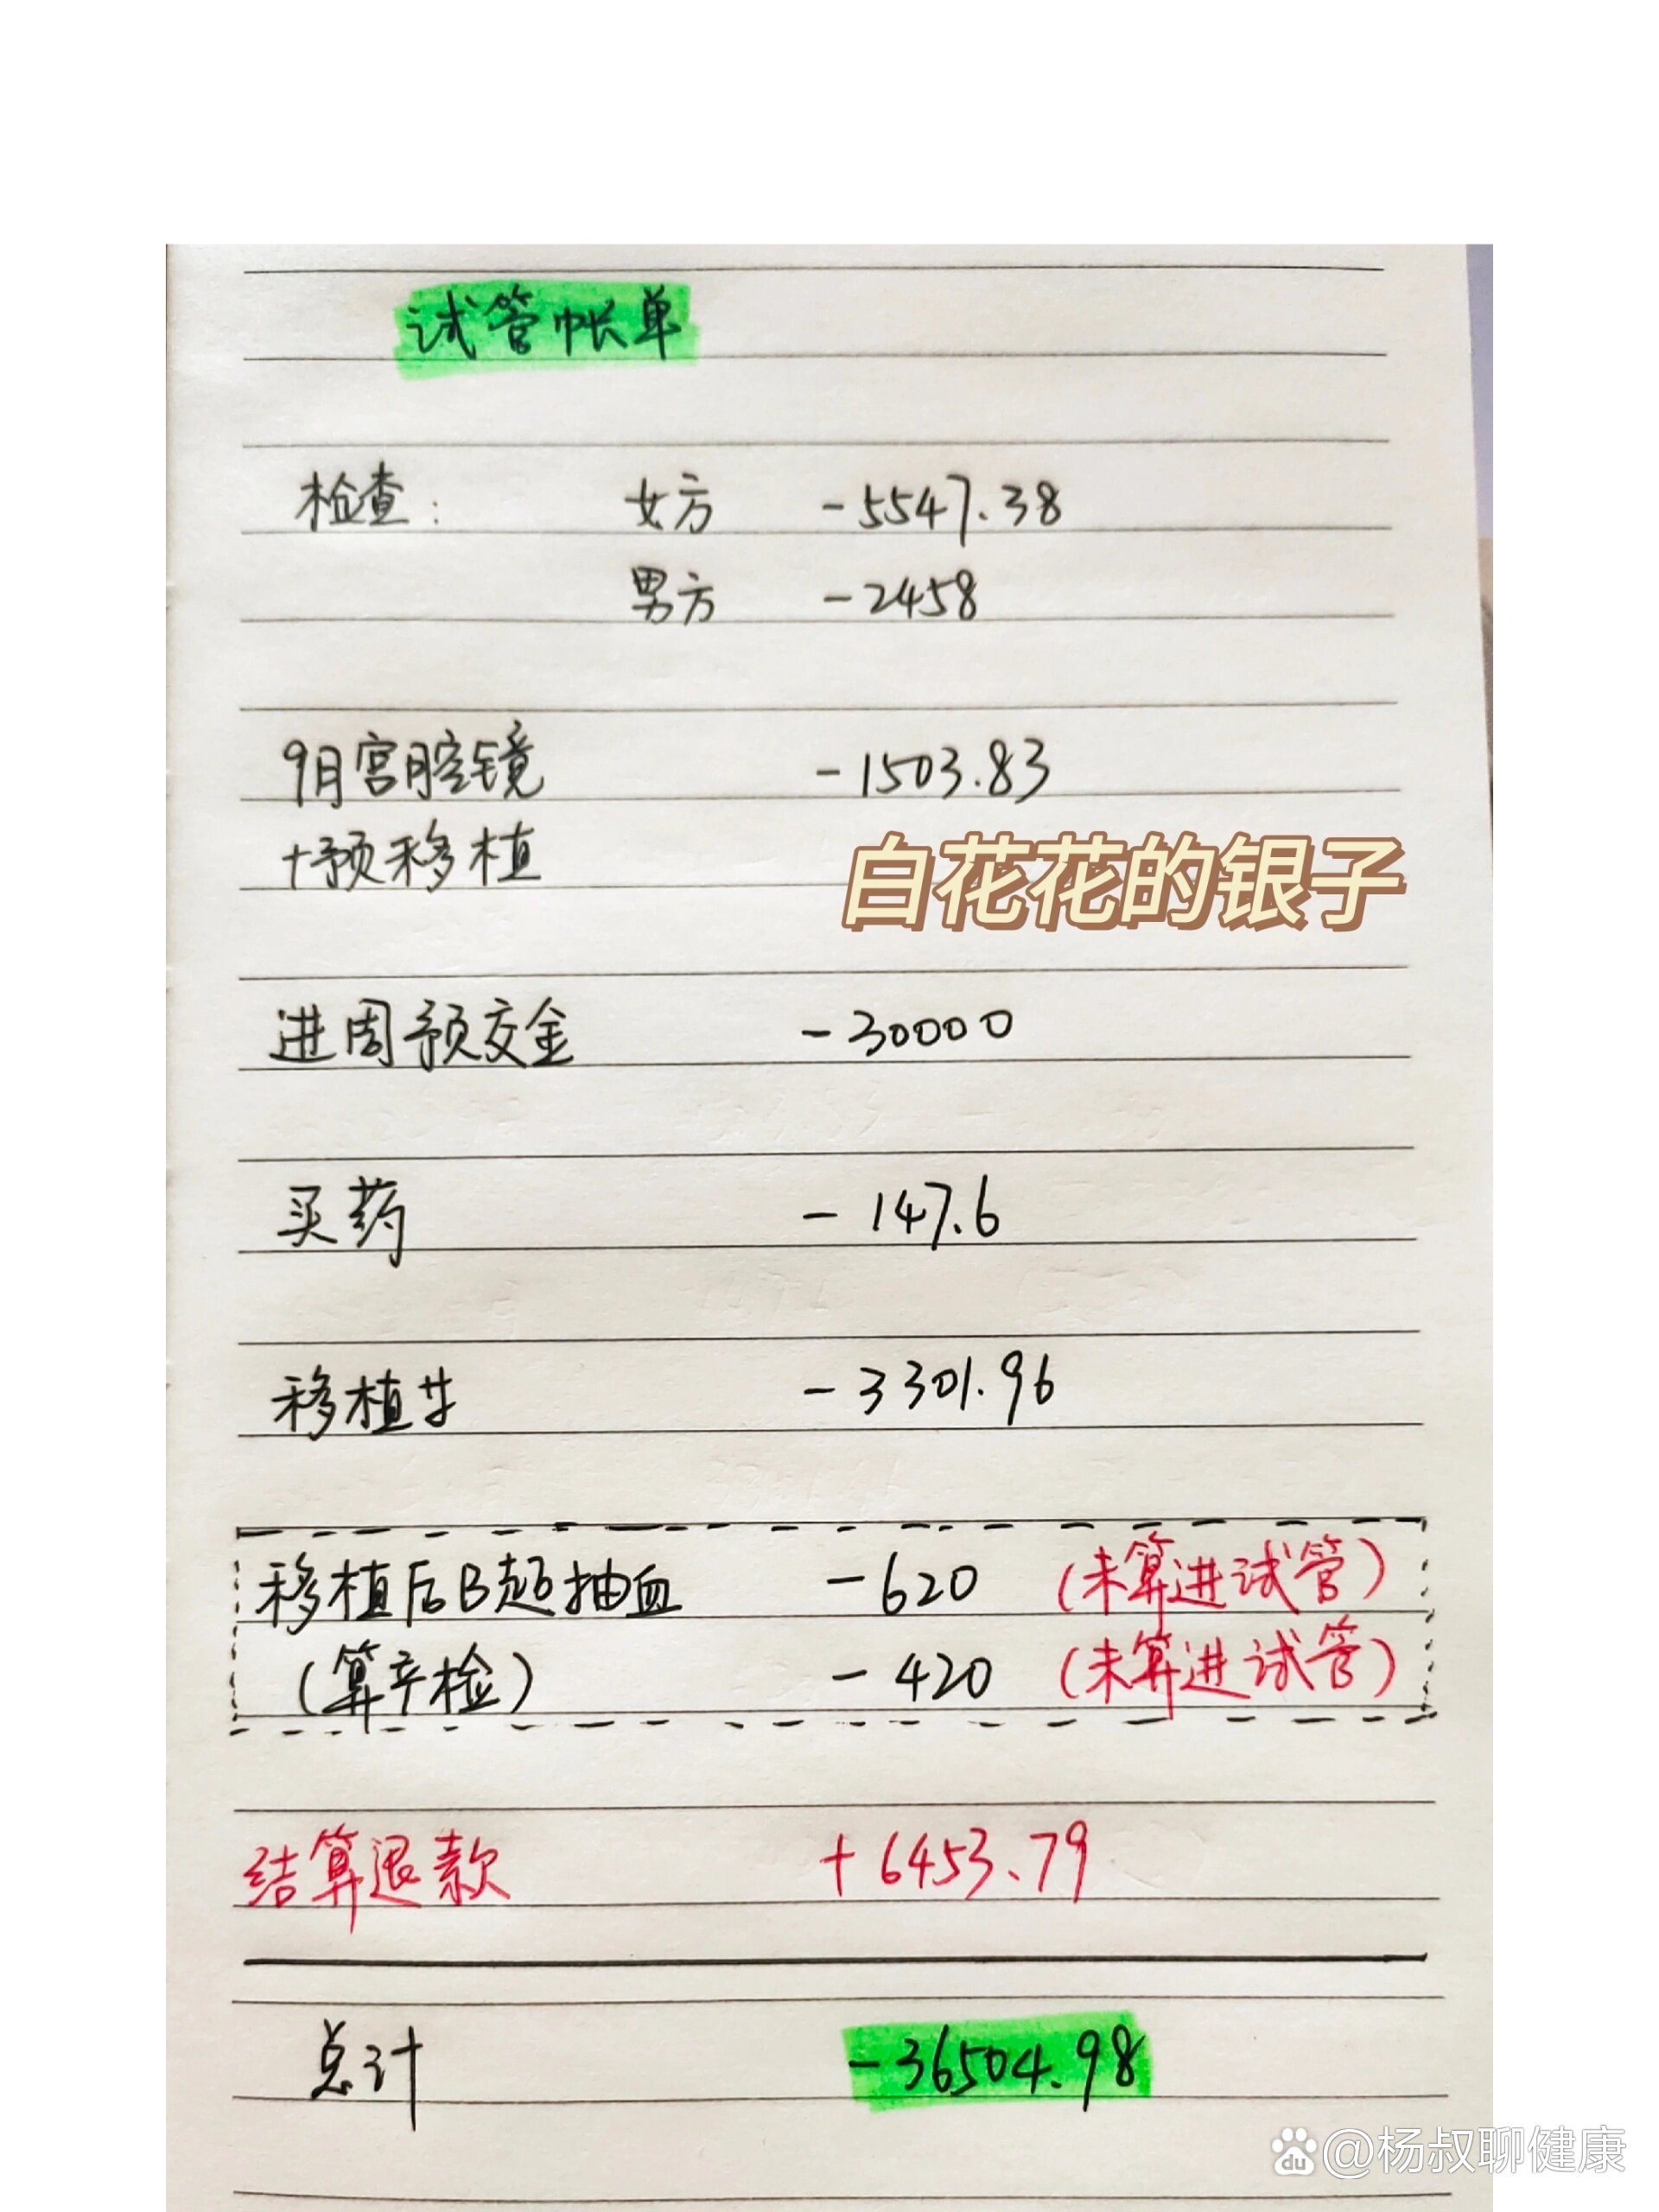 试管帐单
检查: 女方 -5547.38
男方 -2458
9月宫腔镜 -1503.83
+预移植
白花花的银子
进周预交金 -30000
买药 - 147.6
移植廿 -3301.96
移植后B超抽血 -620 (未算进试管)
(算产检) - 420 (未算进试管)
结算退款 +6453.79
总计 -36504.98
du @杨叔聊健康